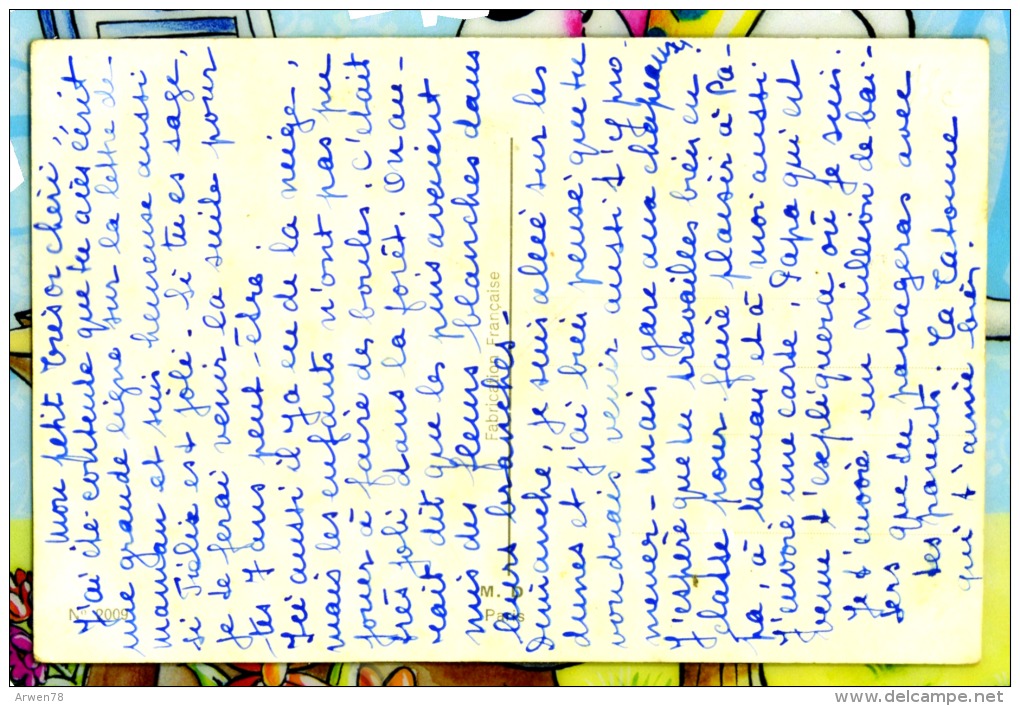 Mon petit trésor chéri,
J'ai été contente que tu aies écrit
une grande ligne sur la lettre de
maman et suis heureuse aussi
si est joli. Si tu es sage,
je te ferai venir la suite pour
tes 7 ans peut-être
Ici aussi il y a eu de la neige,
mais les enfants n'ont pas pu
jouer à faire des boules. C'était
très joli dans la forêt. On au-
rait dit que les pins avaient
mis des fleurs blanches dans
leurs branches -
Dimanche, je suis allée sur les
dunes et j'ai bien pensé que tu
voudrais venir aussi t'y pro-
mener - mais gare aux chapeaux !
J'espère que tu travailles bien en
classe pour faire plaisir à Pa-
pa, à Maman et à moi aussi
J'envoie une carte, Papa qui est
venu t'expliquera où je suis.
Je t'envoie un million de bai-
sers que tu partageras avec
tes parents. Ta Tatoune
qui t'aime bien.
Fabrication Française
M. D
Paris
N° 2009
Arwen78
www.delcampe.net